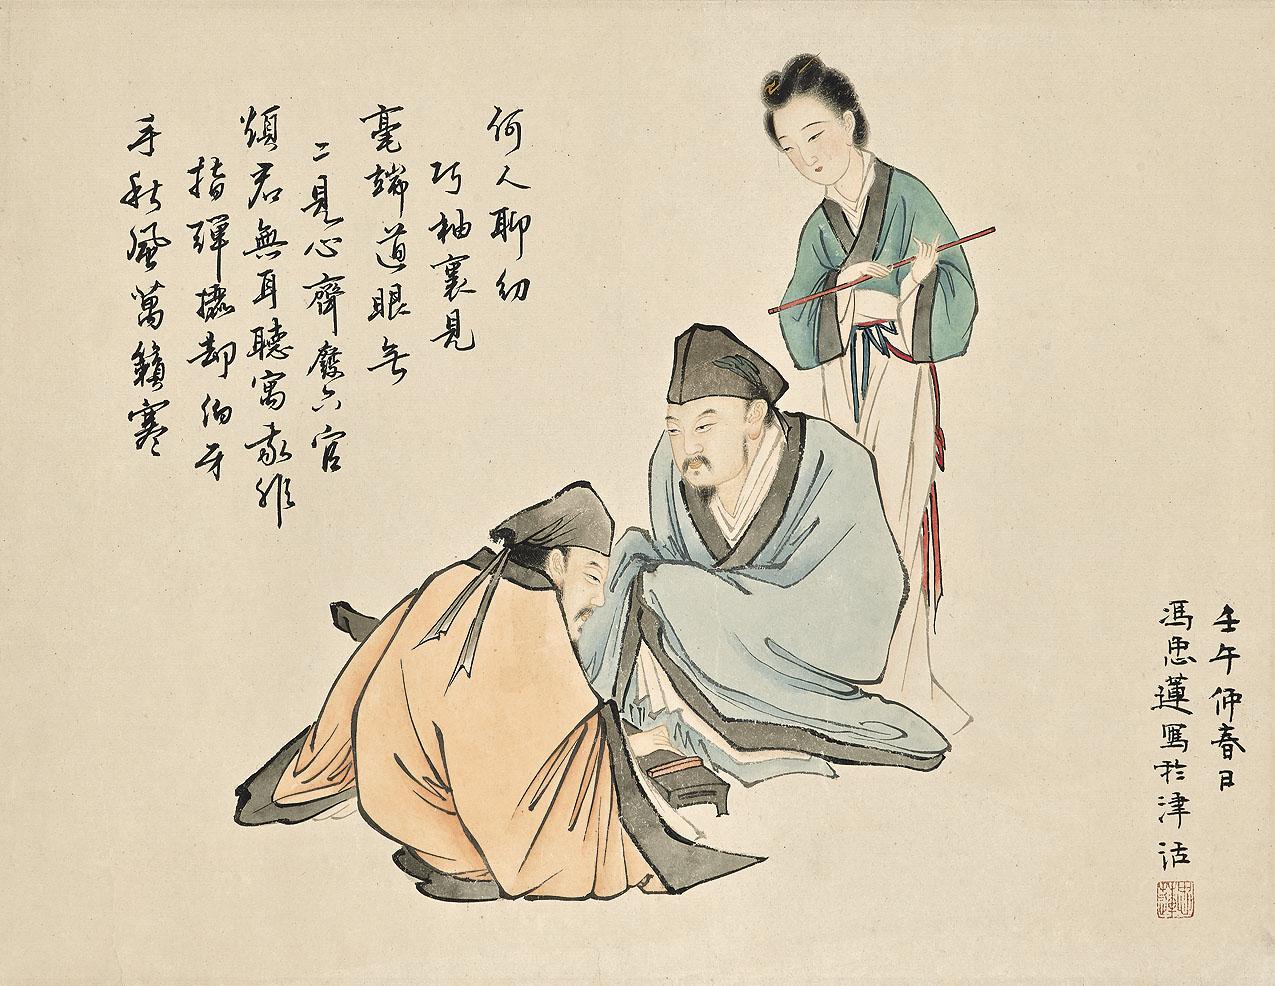 何人聊幻
巧袖裏見
毫端道眼无
二見心齋廢六官
煩君無耳聽寓我非
指彈却伯牙
手秋風萬籟寒
壬午仲春日
馮忠蓮寫於津沽
忠蓮